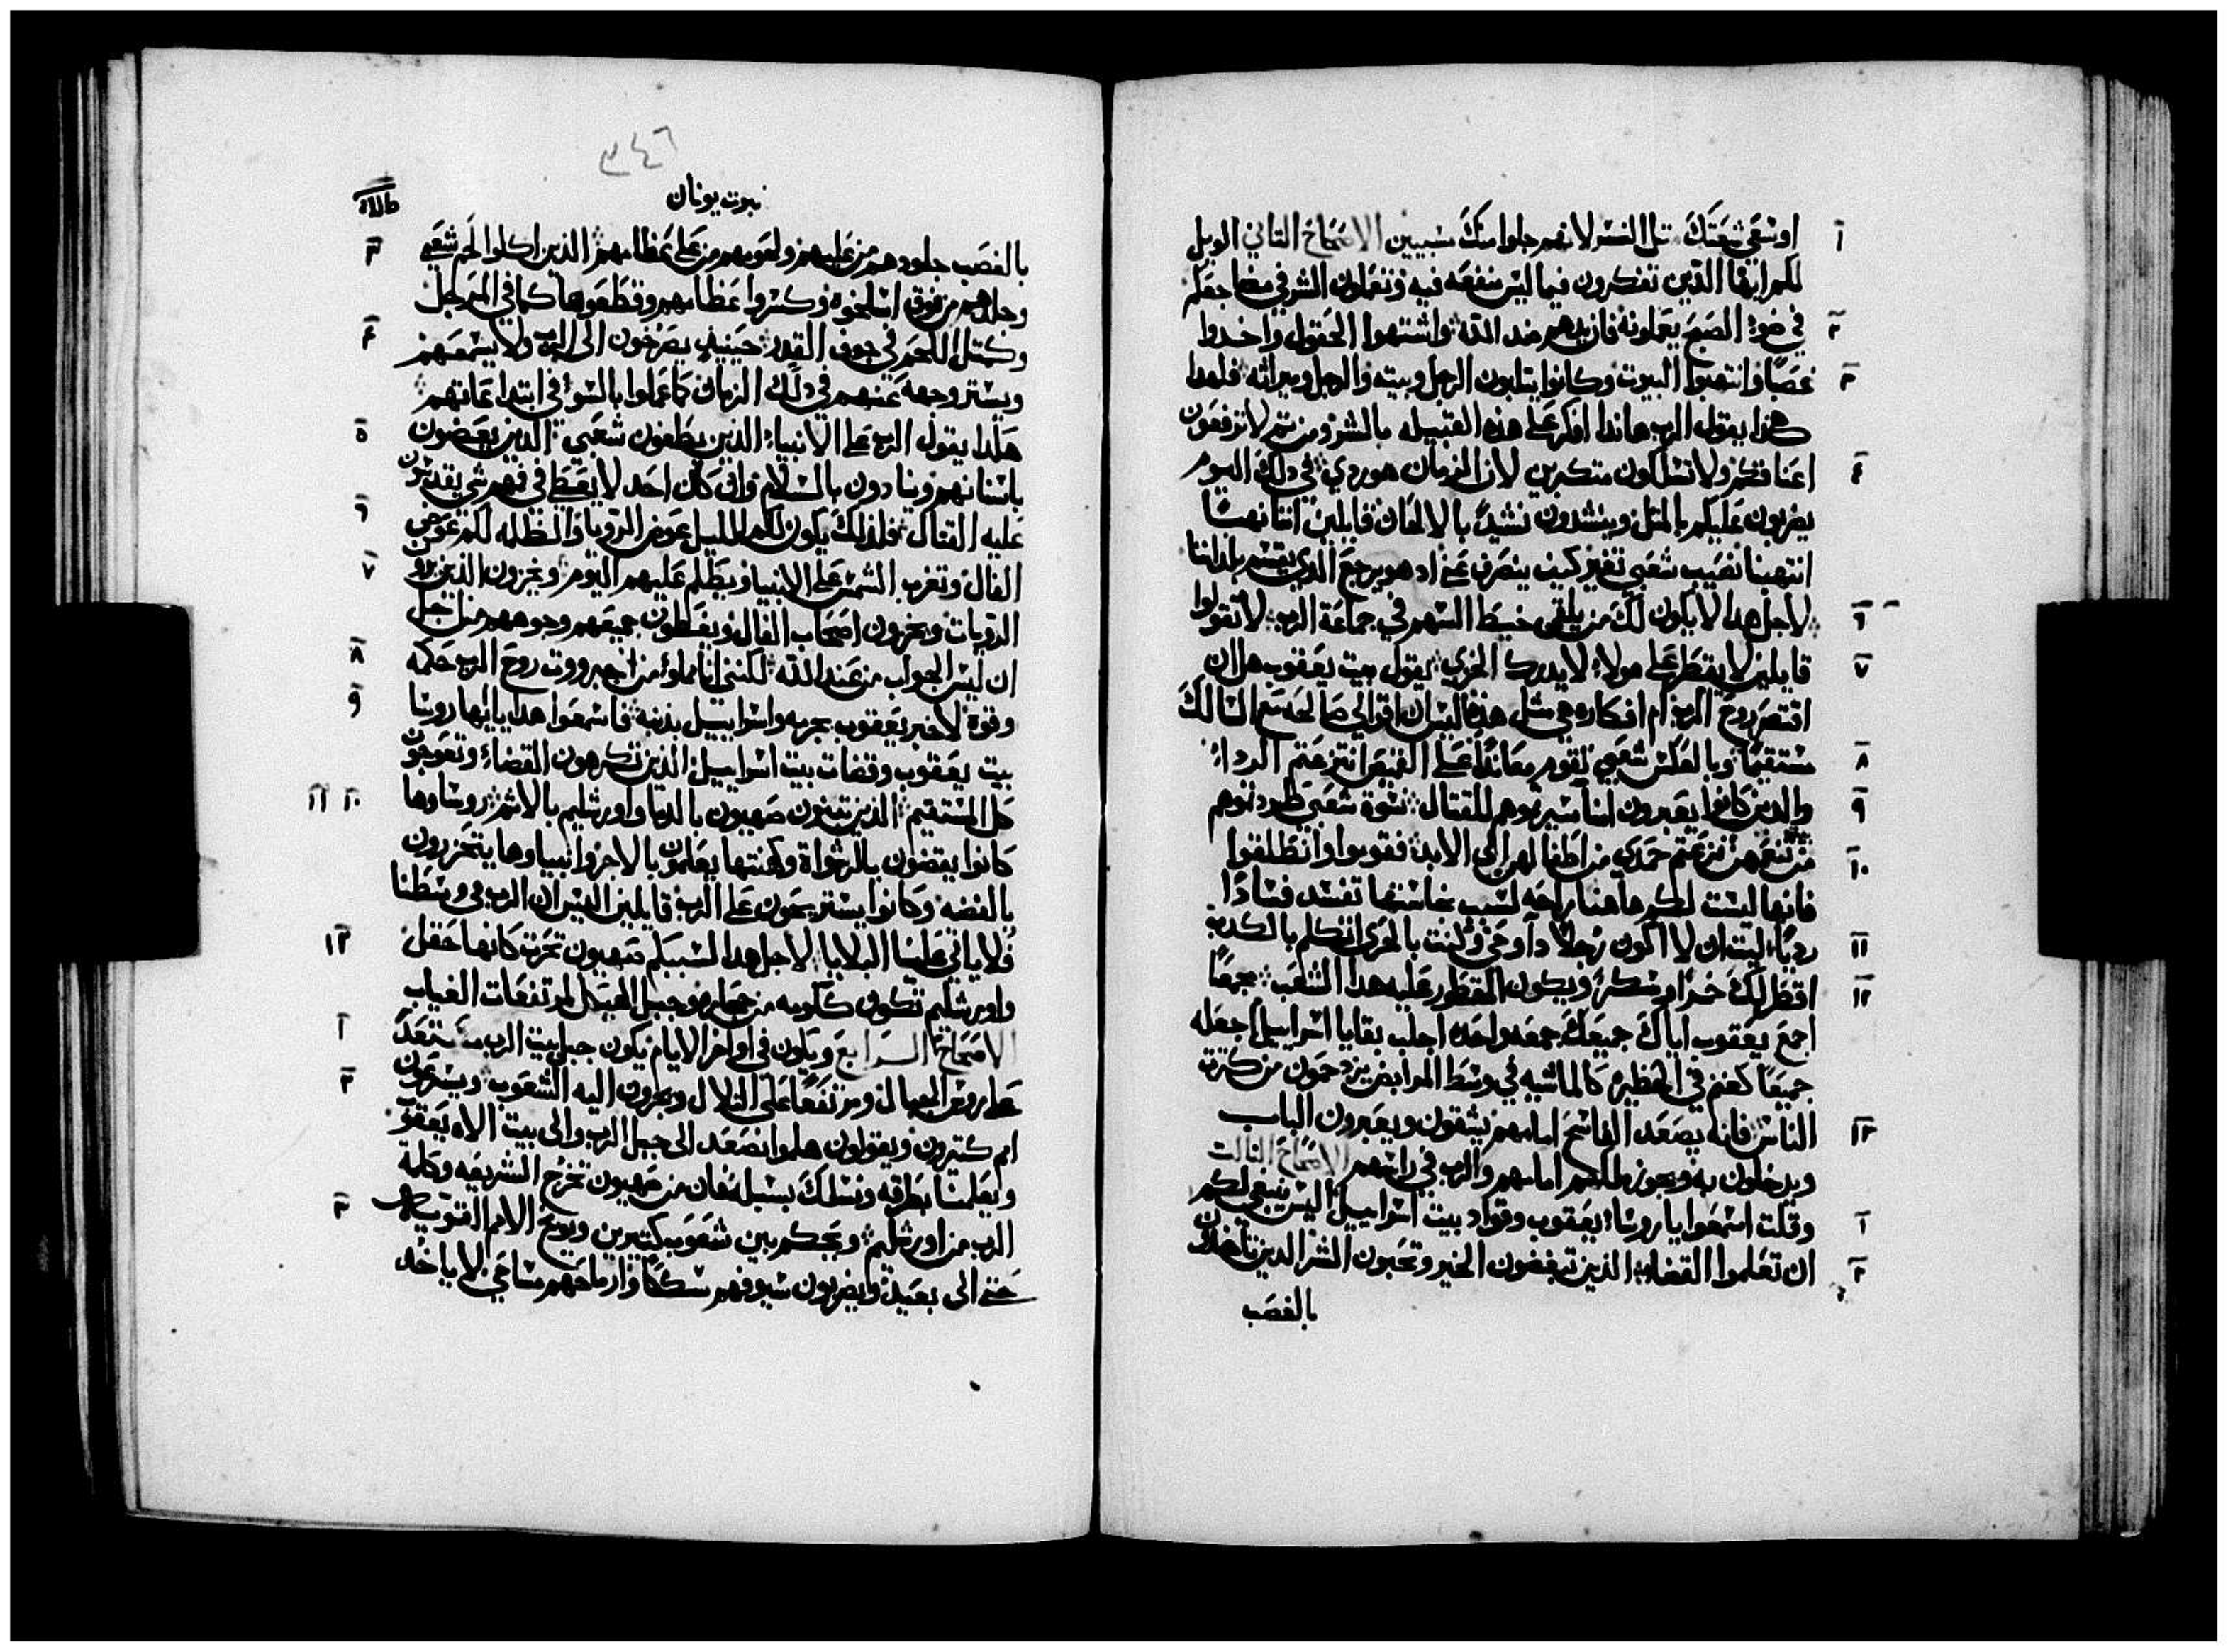 اوسعي شعتك تل النسر لانهم جلوا منك سبيين الاصحاح التاني الويل
لكم ايها الذين تفكرون فيما ليس منفعه فيه وتفعلون الشر في مضاجعكم
في ضوء الصبح يعملونه فان يدهم ضد الله واشتهوا الحقول واخدوا
غصبا وانتهبوا البيوت وكانوا يتلبون الرجل وبيته والرجل وميراته فلهدا
هكذا يقول الرب هاندا افكر على هذه القبيله بالشر ومن تم لا ترفعون
اعناقكم ولا تسلكون متكبرين لان الزمان هو ردي في دلك اليوم
يضربون عليكم بالمتل وينشدون نشيدا بالالحان قايلين اننا نهبنا
انتهبنا نصيب شعبي تغير كيف ينصرف عني اد هو يرجع الدي يقسم بلداننا
لاجل هدا لا يكون لك من يلقي خيط السهم في جماعة الرب لا تقولوا
قايلين لا يقطر على هولاء لا يدرك الخزي يقول بيت يعقوب هل ان
اقتصر روح الرب ام افكاره هي متل هذه اليس ان اقوالي صالحه مع السالك
مستقيما وبالعكس شعبي تقوم معاندا على القميص انتزعتم الرداء
والدين كانوا يعبرون امنا سيرتوهم للقتال نسوة شعبي طردتوهم
من تنعمهن نزعتم حمدي من اطفالهن الى الابد فقوموا وانطلقوا
فانها ليست لكم هاهنا راحه لسبب نجاستها تفسد فسادا
رديا ليت ان لا اكون رجلا دا وحي وكنت بالحري اتكلم بالكدب
اقطر لك خمرا ومسكرا ويكون المقطور عليه هدا الشعب جمعا
اجمع يعقوب اياك جميعك جمعه واحده اجلب بقايا اسراييل اجعله
جميعا كغنم في الحظيره كالماشيه في وسط المرابض يزدحمون من كترة
الناس فانه يصعد الفاسح امامهم يشقون ويعبرون الباب
ويدخلون به ويجوز ملكهم امامهم والرب في راسهم الاصحاح التالت
وقلت اسمعوا يا روساء يعقوب وقواد بيت اسراييل اليس ينبغي لكم
ان تعلموا القضاء الذين تبغضون الخير وتحبون الشر الدين تاخذون
بالغصب
٣٤٦
نبوت يونان
بالغصب جلودهم من عليهم ولحومهم من على عظامهم الذين اكلوا لحم شعبي
وجلدهم من فوق اسلخوه وكسروا عظامهم وقطعوها كما في المرجل
وكمتل اللحم في جوف القدر حينيد يصرخون الى الرب ولا يسمعهم
ويستر وجهه عنهم في دلك الزمان كما عملوا بالسوء في ابتداعاتهم
هكدا يقول الرب على الانبياء الذين يطغون شعبي الدين يعضون
باسنانهم وينادون بالسلام وان كان احد لا يعط في فمهم شي يقدسون
عليه القتال فلدلك يكون لكم الليل عوض الرويا والظلمه لكم عوض
الفال وتغرب الشمس على الانبيا ويظلم عليهم اليوم ويخزون الذين يرو
الرويات ويخزون اصحاب الفال ويغطون جميعهم وجوههم من اجل
ان ليس الجواب من عند الله لكنني انا مملوء من جبروت روح الرب حكمه
وقوة لاخبر يعقوب بجرمه واسراييل بذنبه فاسمعوا هدا يا ايها روسا
بيت يعقوب وقضات بيت اسراييل الذين تكرهون القضاء وتعوجون
كل المستقيم الذين تبنون صهيون بالدما واورشليم بالاثم روساوها
كانوا يقضون بالرشواة وكهنتها يعلمون بالاجر وانبياوها يتحزرون
بالفضه وكانوا يستريحون على الرب قايلين اليس ان الرب في وسطنا
فلا ياتي علينا البلايا لاجل هدا لسببكم صهيون تحرت كانها حقل
واورشليم تكون ككومه من حجاره وجبل الهيكل لمرتفعات الغياب
الاصحاح الرابع ويكون في اواخر الايام يكون جبل بيت الرب مستعدا
على روس الجبال ومرتفعا على التلال ويجرون اليه الشعوب ويسرعون
امم كتيرون ويقولون هلموا نصعد الى جبل الرب والى بيت الاه يعقوب
ويعلمنا بطرقه ونسلك بسبله فان من صهيون تخرج الشريعه وكلمة
الرب من اورشليم ويحكم بين شعوب كتيرين ويوبخ الامم القويه
حتى الى بعيد ويضربون سيوفهم سككا وارماحهم مساحي لا ياخد